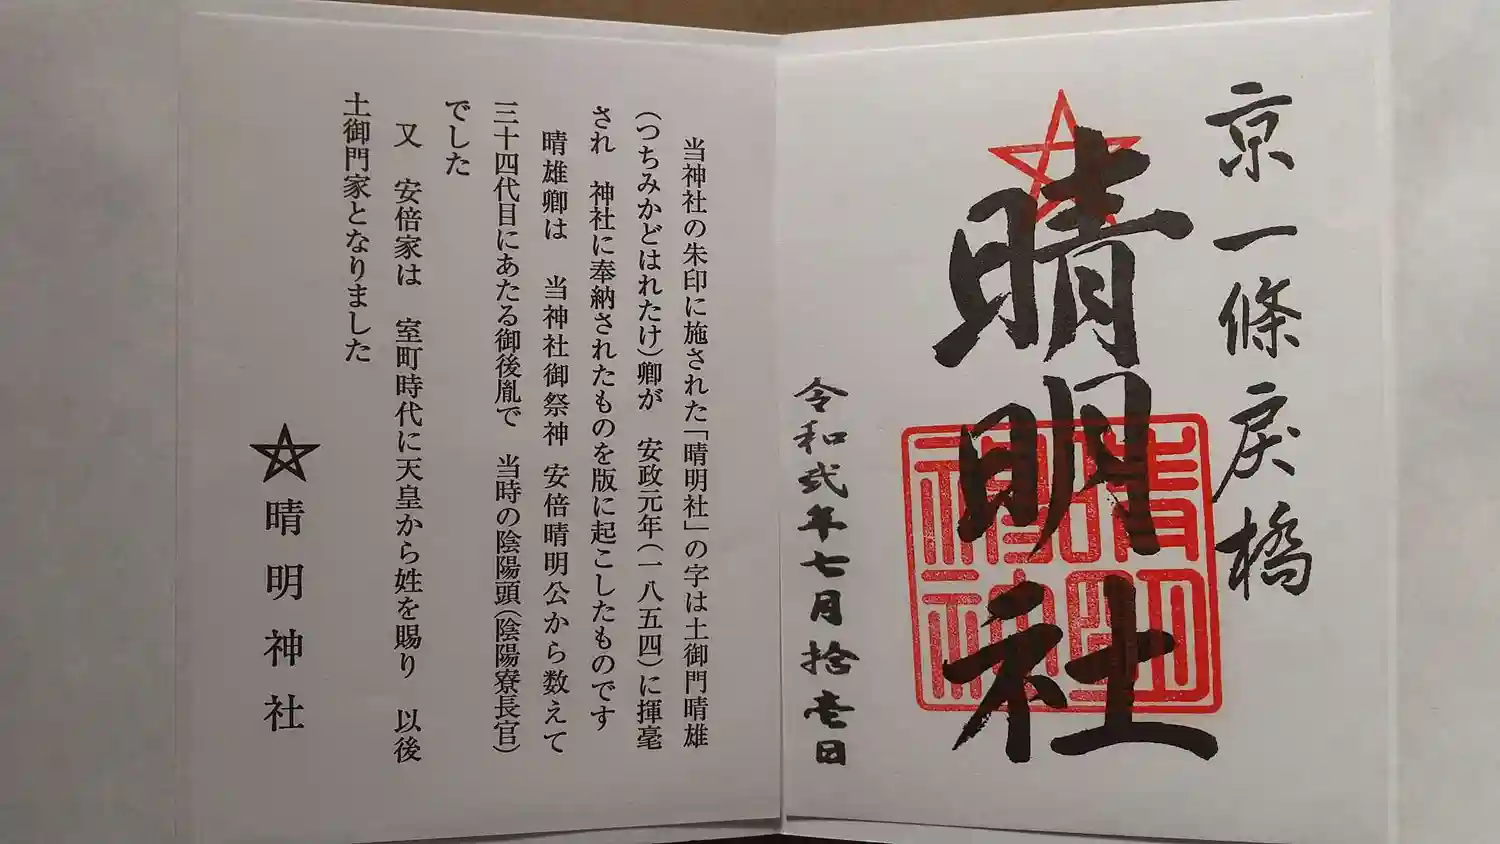 京一條戻橋
晴明社
晴明神社
令和弐年七月拾壱日
当神社の朱印に施された「晴明社」の字は土御門晴雄
(つちみかどはれたけ)卿が　安政元年(一八五四)に揮毫
され　神社に奉納されたものを版に起こしたものです
晴雄卿は　当神社御祭神 安倍晴明公から数えて
三十四代目にあたる御後胤で　当時の陰陽頭(陰陽寮長官)
でした
又　安倍家は　室町時代に天皇から姓を賜り　以後
土御門家となりました
晴明神社